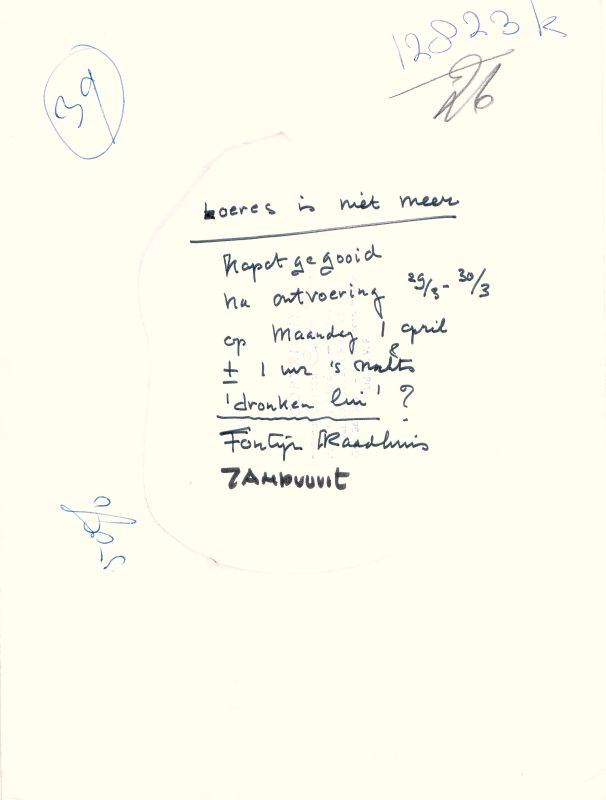 12823 k
39
26
Loeres is niet meer
Kapot gegooid
na ontvoering 29/3 - 30/3
op Maandag 1 april
± 1 uur 's nachts
'dronken lui' ?
Fontijn Raadhuis
ZANDVOORT
50%